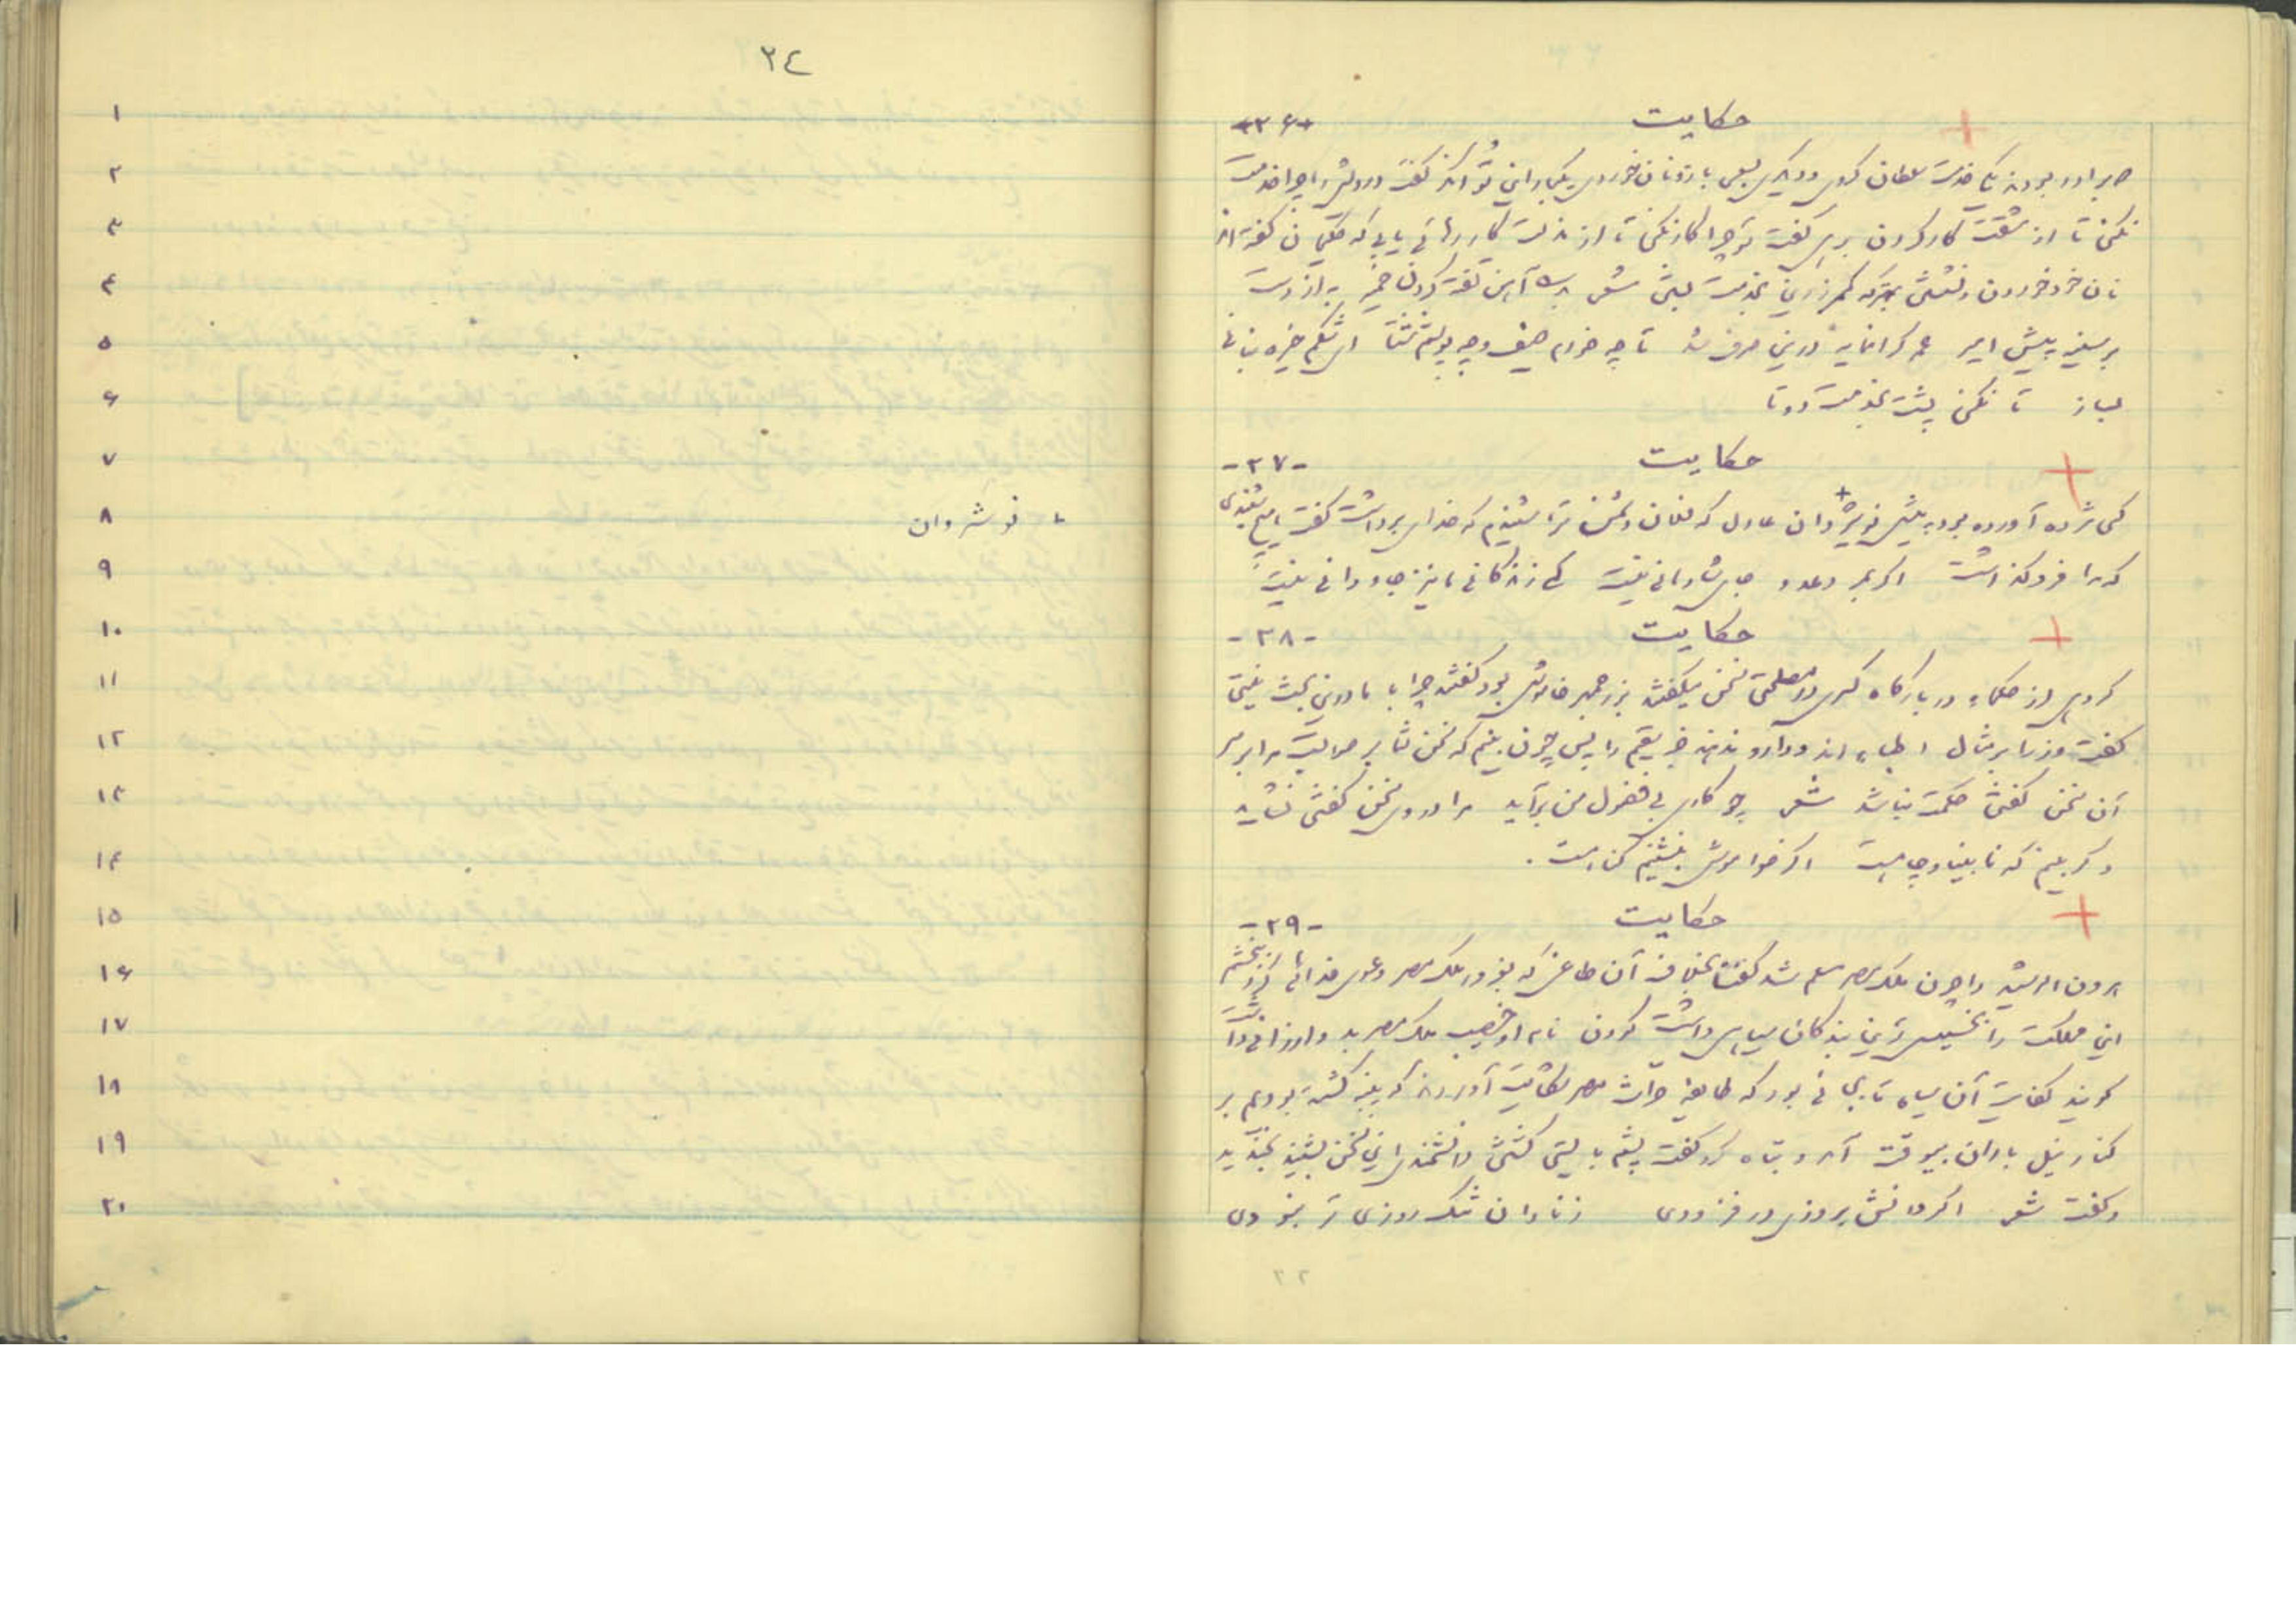 حکایت -۳۶-
دو برادر بودند یکی خدمت سلطان کردی و دیگری بسعی بازو نان خوردی یکبار این توانگر گفت درویش را چرا خدمت
نکنی تا از مشقت کار کردن برهی گفت تو چرا کار نکنی تا از مذلت کار رهائی یابی که حکیمان گفته‌اند
نان خود خوردن و نشستن به که کمر زرین بخدمت بستن شعر بدست آهن تفته کردن خمیر به از دست
بر سینه پیش امیر عمر گرانمایه درین صرف شد تا چه خورم صیف و چه پوشم شتا ای شکم خیره بنانی
بساز تا نکنی پشت بخدمت دوتا
حکایت -۳۷-
کسی مژده آورده بود پیش نوشیروان عادل که فلان دشمن ترا شنیدم که خدای برداشت گفت هیچ شنیدی
که مرا فرو گذاشت اگر بمرد عدو جای شادمانی نیست که زندگانی ما نیز جاودانی نیست
حکایت -۳۸-
گروهی از حکماء در بارگاه کسری در مصلحتی سخن میگفتند بزرجمهر خاموش بود گفتند چرا با ما درین بحث نیستی
گفت وزرا بر مثال اطباء اند و دارو ندهند جز سقیم را پس چون بینم که سخن شما بر صوابست مرا بر سر
آن سخن گفتن حکمت نباشد شعر چو کاری بی فضول من برآید مرا در وی سخن گفتن نشاید
و گر بینم که نابینا و چاهست اگر خاموش بنشینم گناهست.
حکایت -۳۹-
هرون الرشید را چون ملک مصر مسلم شد گفتا بخلاف آن طاغی که بغرور ملک مصر دعوی خدائی کرد نبخشم
این مملکت را بخسیس‌ترین بندگان سیاهی داشت کودن نام او خصیب ملک مصر بدو ارزانی داشت
گویند کفایت آن سیاه تا بجائی بود که طایفهٔ حرّاث مصر شکایت آوردند که پنبه کشته بودیم بر
کنار نیل باران بیوقت آمد و تباه کرد گفت پشم بایستی کشتن دانشمندی این سخن بشنید بخندید
و گفت شعر اگر دانش بروزی در فزودی ز نادان تنگ روزی تر نبودی
۳٤
۱
۲
۳
۴
۵
۶
۷
۸ +- نوشروان
۹
۱۰
۱۱
۱۲
۱۳
۱۴
۱۵
۱۶
۱۷
۱۸
۱۹
۲۰